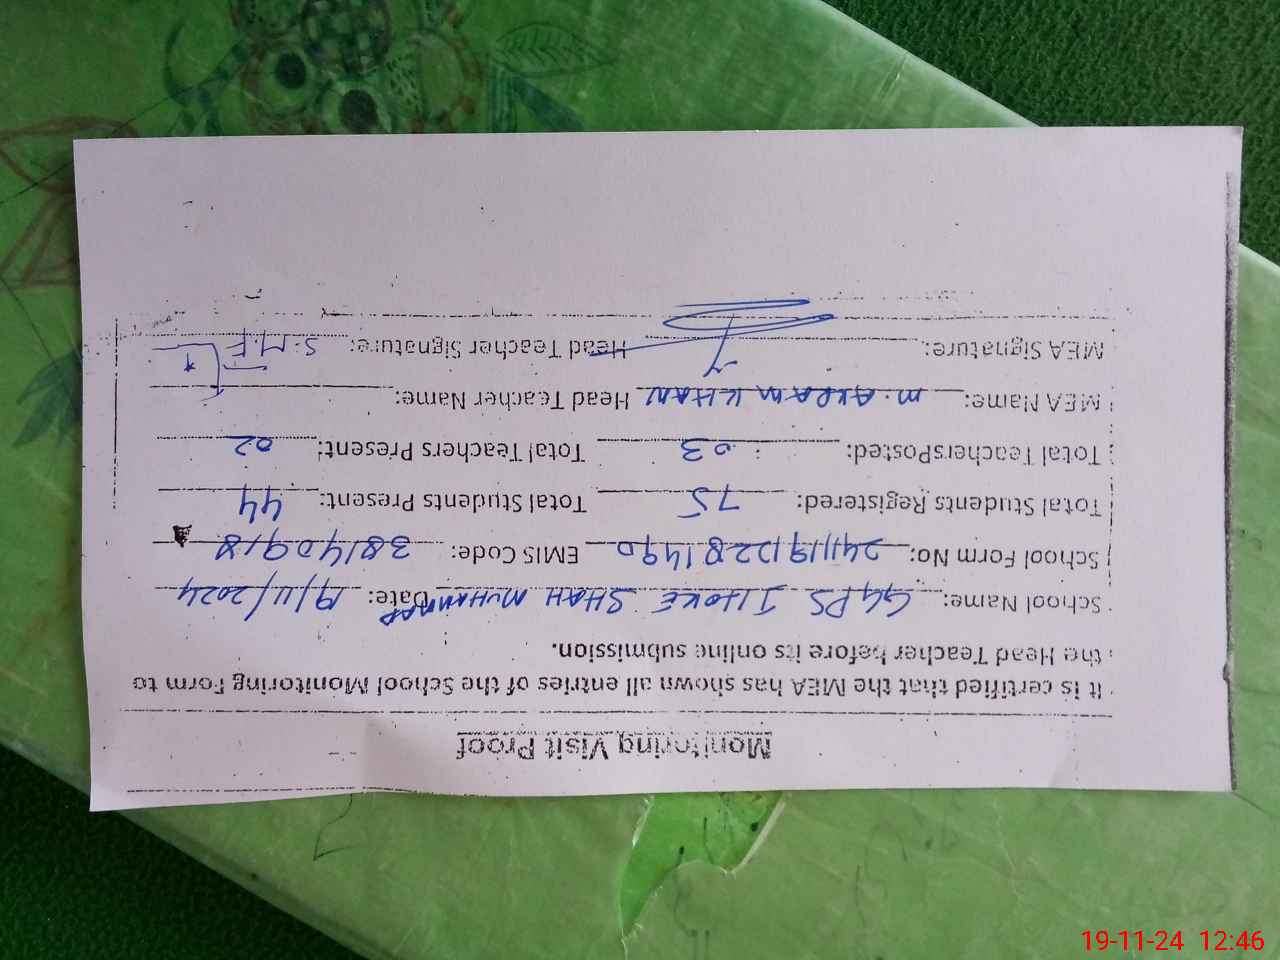 Monitoring Visit Proof
It is certified that the MEA has shown all entries of the School Monitoring Form to
the Head Teacher before its online submission.
School Name: GGPS JHOKE SHAH MUHAMMAD Date: 19/11/2024
School Form No: EMIS Code:
Total Students Registered: 75 Total Students Present: 44
Total TeachersPosted: 03 Total Teachers Present: 02
MEA Name: M. AKRAM KHAN Head Teacher Name:
MEA Signature: Head Teacher Signature:
19-11-24 12:46